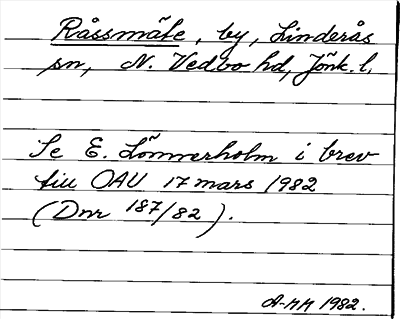 Råssmåle, by, Linderås
sn, N. Vedbo hd, Jönk. l.
Se E. Lönnerholm i brev
till OAU 17 mars 1982
(Dnr 187/82).
A-MM 1982.